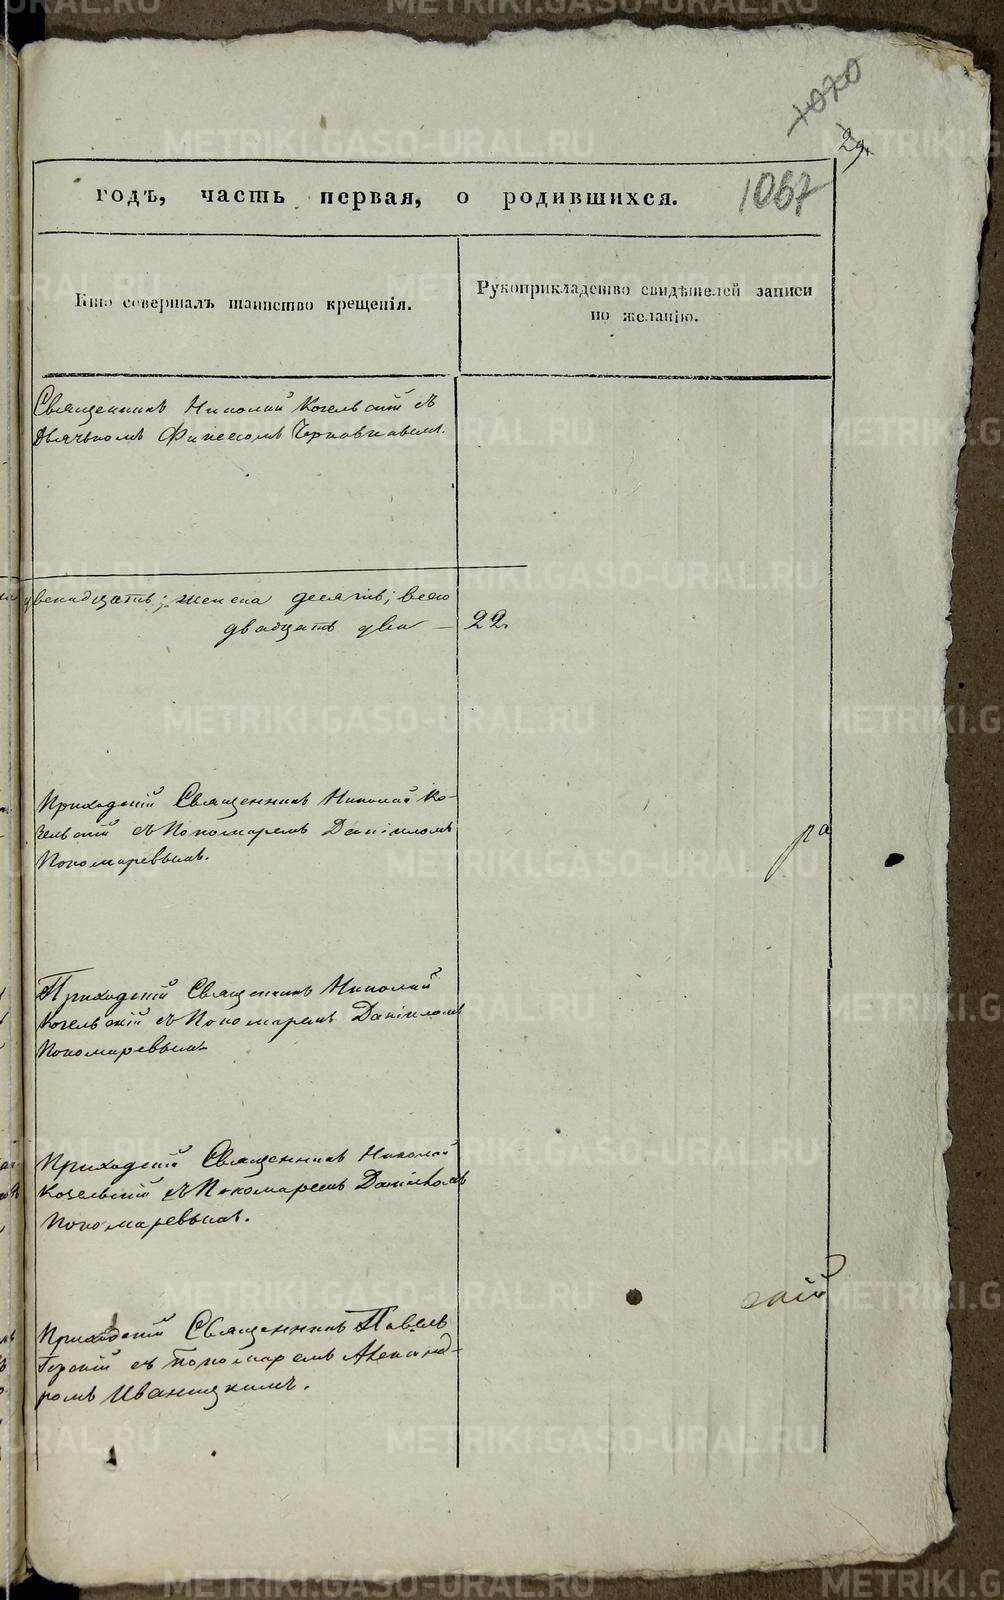 1070
29.
годъ, часть первая, о родившихся.
1067
Кто совершалъ таинство крещенія.
Рукоприкладство свидѣтелей записи
по желанію.
Священникъ Николай Козельскій съ
Дьячькомъ Финеесомъ
двенадцать; женска десять; всего
двадцать два – 22.
Приходскій Священникъ Николай Ко-
зельскій съ Пономаремъ Даніиломъ
Пономаревымъ.
Приходскій Священникъ Николай
Козельскій съ Пономаремъ Даніиломъ
Пономаревымъ
Приходскій Священникъ Николай
Козельскій съ Пономаремъ Даніиломъ
Пономаревымъ.
Приходскій Священникъ Павелъ
Горскій съ Пономаремъ Александ-
ромъ Иваницкимъ.
ра
скій
METRIKI.GASO-URAL.RU